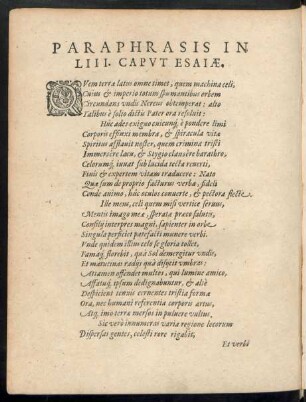 PARAPHRASIS IN
LIII. CAPVT ESAIÆ.
QVem terræ latus omne timet, quem machina cœli,
Cuius & imperio totum spumantibus orbem
Circundans vndis Nereus obtemperat: alto
Talibus è solio dictu Pater ora resoluit:
Huc ades exiguo cuicunq; è pondere limi
Corporis effinxi membra, & spiracula vitæ
Spiritus afflauit noster, quem crimina tristi
Immersere lacu, & Stygio clausere barathro,
Celerumq; iuuat sublucida tecta reuerti,
Finis & expertem vitam traducere: Nato
Quæ sum de proprio facturus verba, fideli
Conde animo, huc oculos conuerte, & pectora flecte.
Ille meus, cœli quem misi vertice seruus,
Mentis imago meæ, sperata præco salutis,
Consilij interpres magni, sapienter in orbe
Singula perficiet patefacti munere verbi.
Vnde quidem illum celsi se gloria tollet,
Famaq; florebit, qua Sol demergitur vndis,
Et matutinas radijs qua discutit vmbras:
Attamen offendet multos, qui lumine amico,
Affatuq; ipsum dedignabuntur, & aliè
Despicient tenuis cernentes tristia formæ
Ora, nec humani referentia corporis artus,
Atq; imo terræ mersos in puluere vultus,
Sic verò innumeras varia regione locorum
Dispersas gentes, cœlesti rore rigabit,
Et verbi